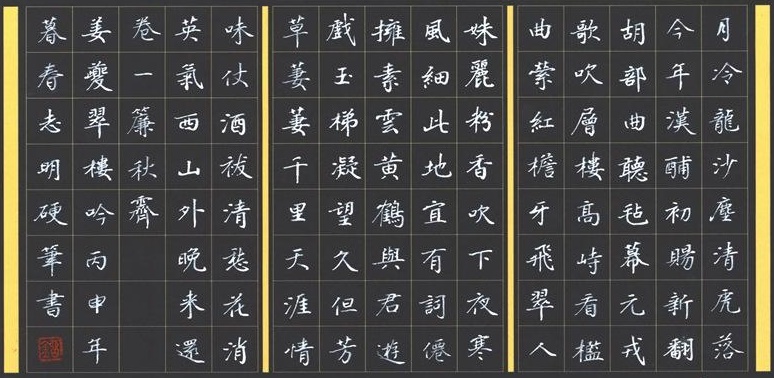 月冷龍沙塵清虎落
今年漢酺初賜新翻
胡部曲聽毡幕元戎
歌吹層樓高峙看檻
曲縈紅檐牙飛翠人
姝麗粉香吹下夜寒
風細此地宜有詞僊
擁素雲黃鶴與君遊
戲玉梯凝望久但芳
草萋萋千里天涯情
味仗酒祓清愁花消
英氣西山外晚來還
卷一簾秋霽
姜夔翠樓吟丙申年
暮春志明硬筆書